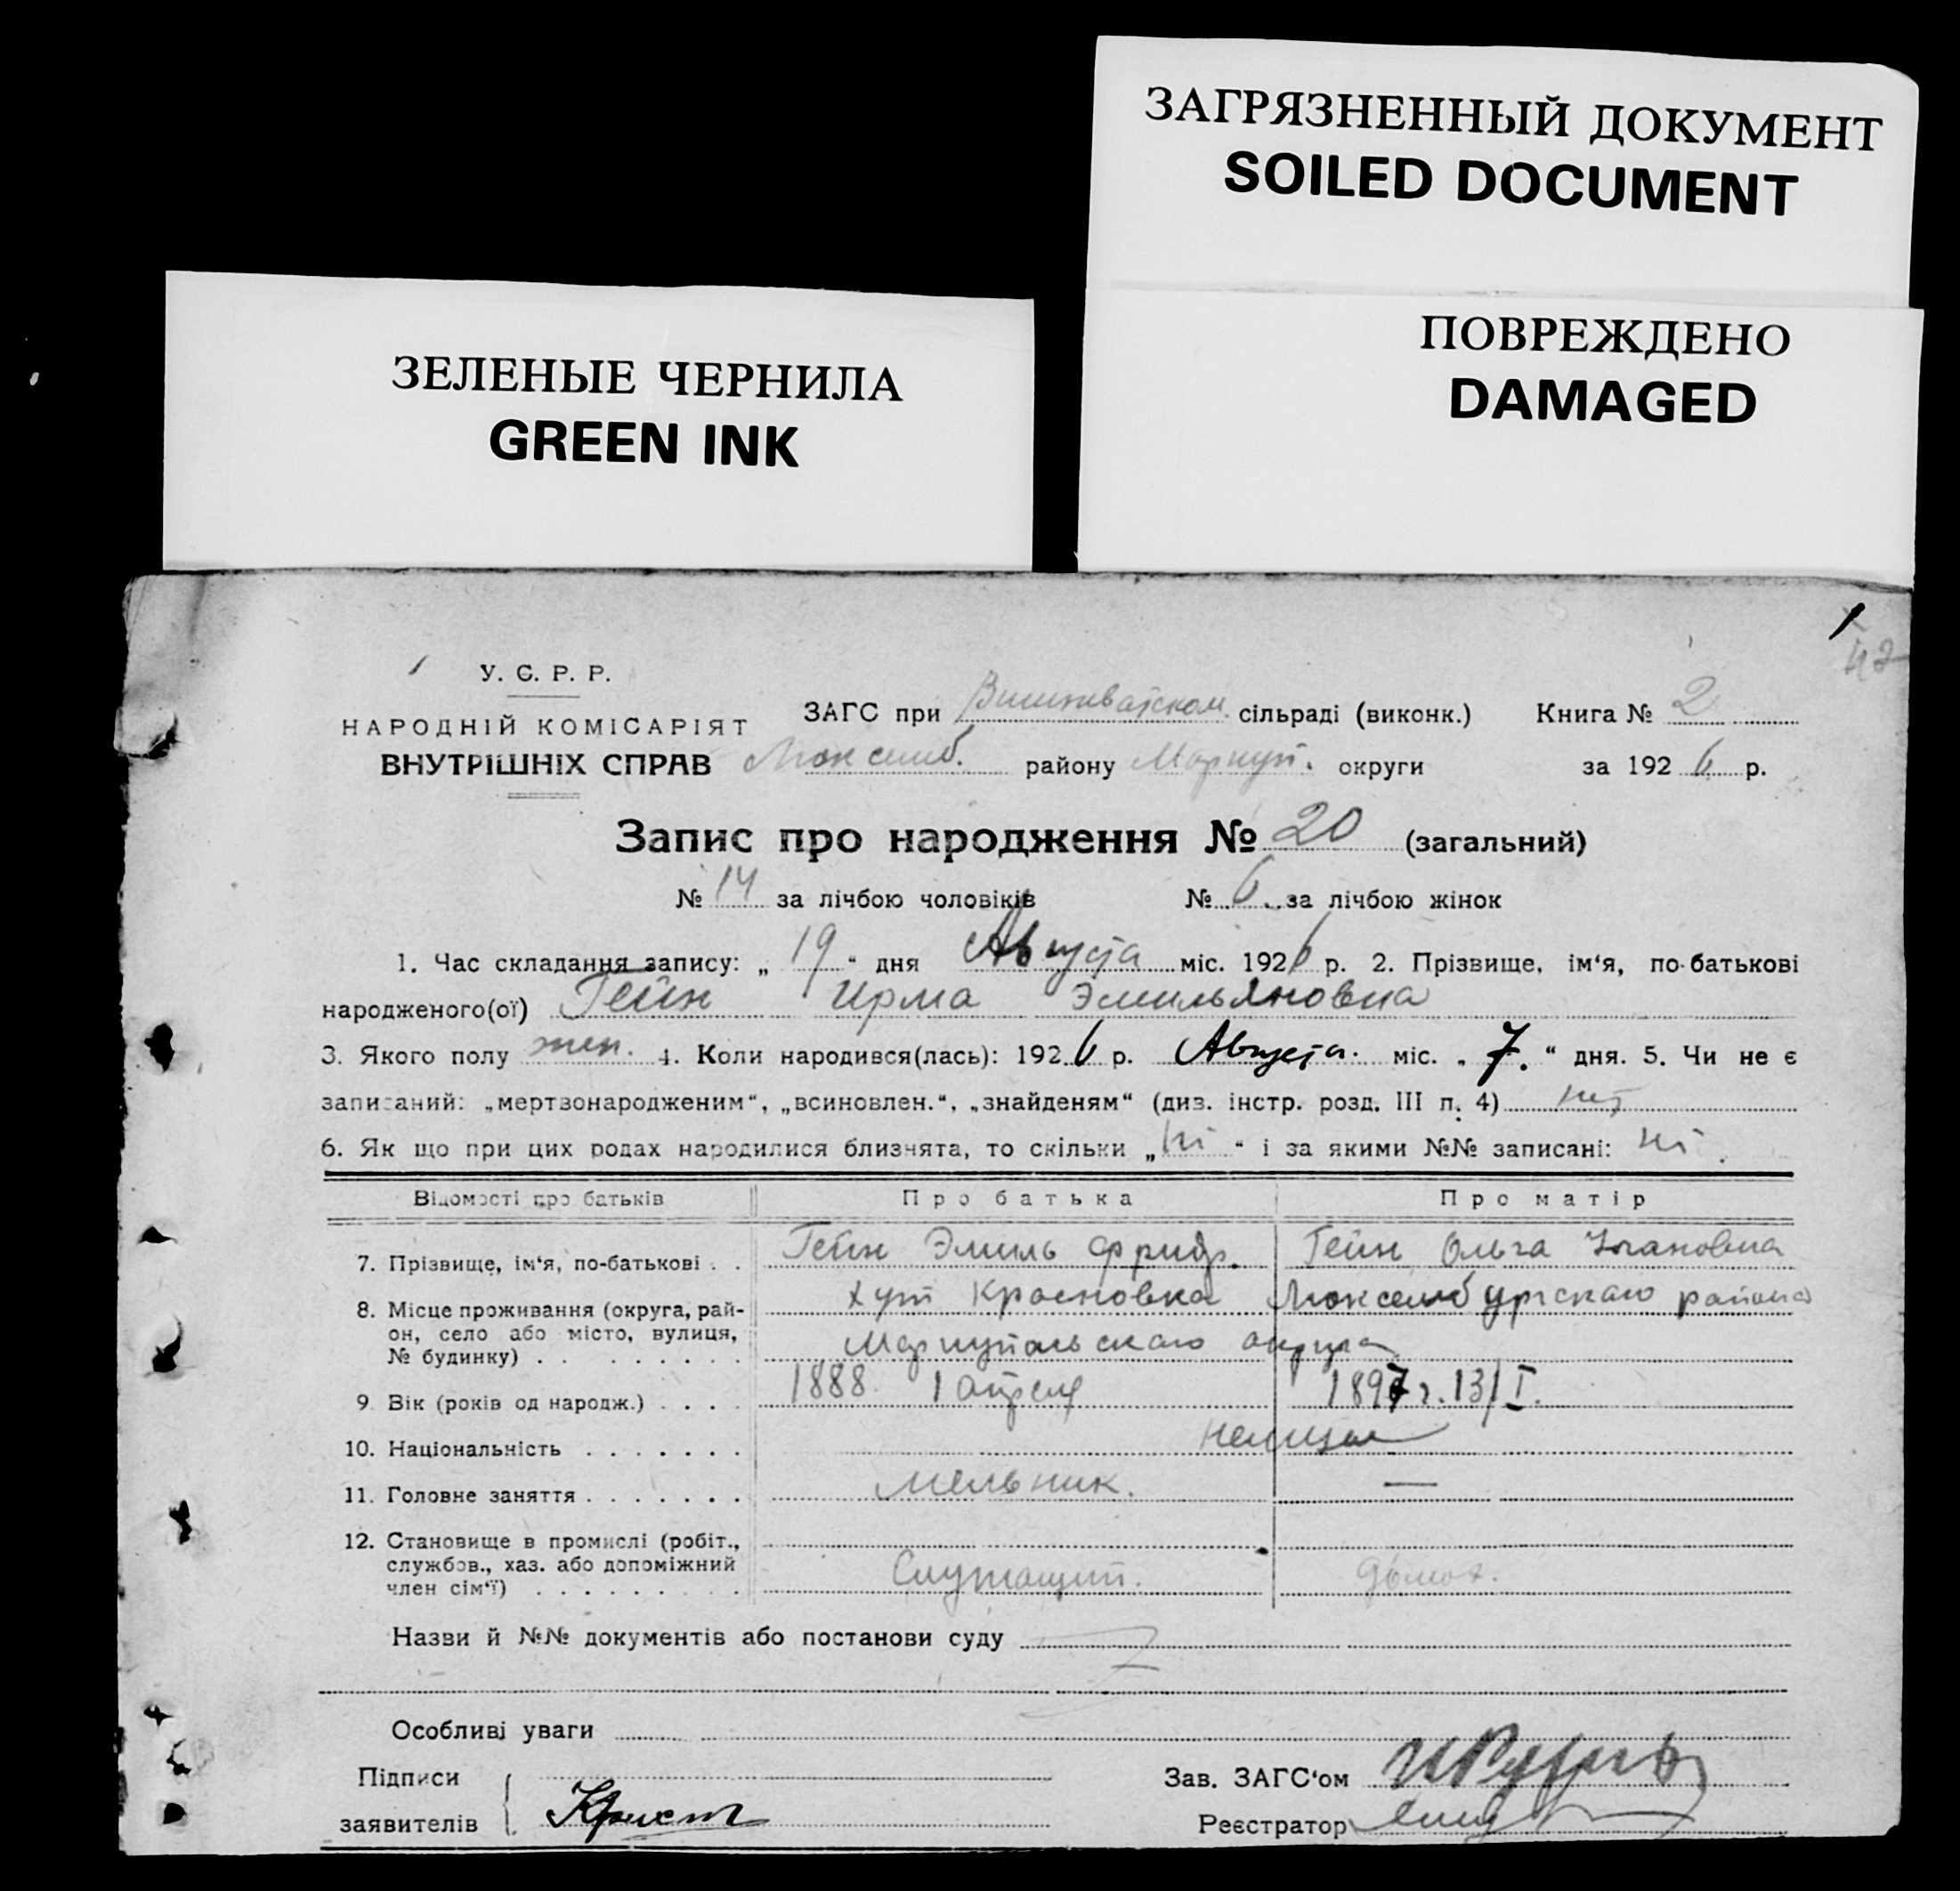 ЗАГРЯЗНЕННЫЙ ДОКУМЕНТ
SOILED DOCUMENT
ПОВРЕЖДЕНО
DAMAGED
ЗЕЛЕНЫЕ ЧЕРНИЛА
GREEN INK
1
42
У. С. Р. Р.
НАРОДНІЙ КОМІСАРІЯТ
ВНУТРІШНІХ СПРАВ
ЗАГС при сільраді (виконк.) Книга № 2
Люксемб. району Мариуп. округи за 1926 р.
Запис про народження № 20 (загальний)
№ 14 за лічбою чоловіків № 6 за лічбою жінок
1. Час складання запису: „19“ дня Августа міс. 1926 р. 2. Прізвище, ім‘я, по-батькові
народженого(ої) Гейн Ирма Эмильяновна
3. Якого полу жен. 4. Коли народився(лась): 1926 р. Августа. міс. „7.“ дня. 5. Чи не є
записаний: „мертвонародженим“, „всиновлен.“, „знайденям“ (див. інстр. розд. III п. 4) ні
6. Як що при цих родах народилися близнята, то скільки „ні“ і за якими №№ записані: ні.
Відомості про батьків Про батька Про матір
7. Прізвище, ім‘я, по-батькові . . Гейн Эмиль Фридр. Гейн Ольга
8. Місце проживання (округа, рай-
он, село або місто, вулиця,
№ будинку) . . . . . . . .
хут Красновка Люксембургскаго района
Мариупольскаго округа
9. Вік (років од народж.) . . . . 1888 1 апреля 1897 г. 13/I.
10. Національність . . . . . . . немцы
11. Головне заняття . . . . . . . Мельник. —
12. Становище в промислі (робіт.,
службов., хаз. або допоміжний
член сім‘ї) . . . . . . . . .
Служащий. домох.
Назви й №№ документів або постанови суду
Особливі уваги
Підписи
заявителів Крист
Зав. ЗАГС‘ом
Реєстратор